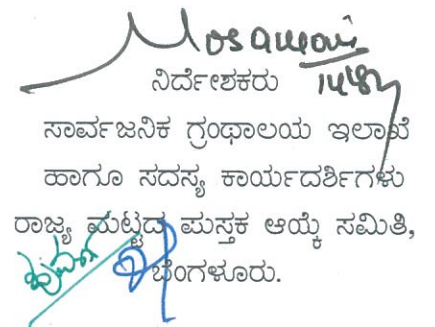 ನಿರ್ದೇಶಕರು
ಸಾರ್ವಜನಿಕ ಗ್ರಂಥಾಲಯ ಇಲಾಖೆ
ಹಾಗೂ ಸದಸ್ಯ ಕಾರ್ಯದರ್ಶಿಗಳು
ರಾಜ್ಯ ಮಟ್ಟದ ಪುಸ್ತಕ ಆಯ್ಕೆ ಸಮಿತಿ,
ಬೆಂಗಳೂರು.